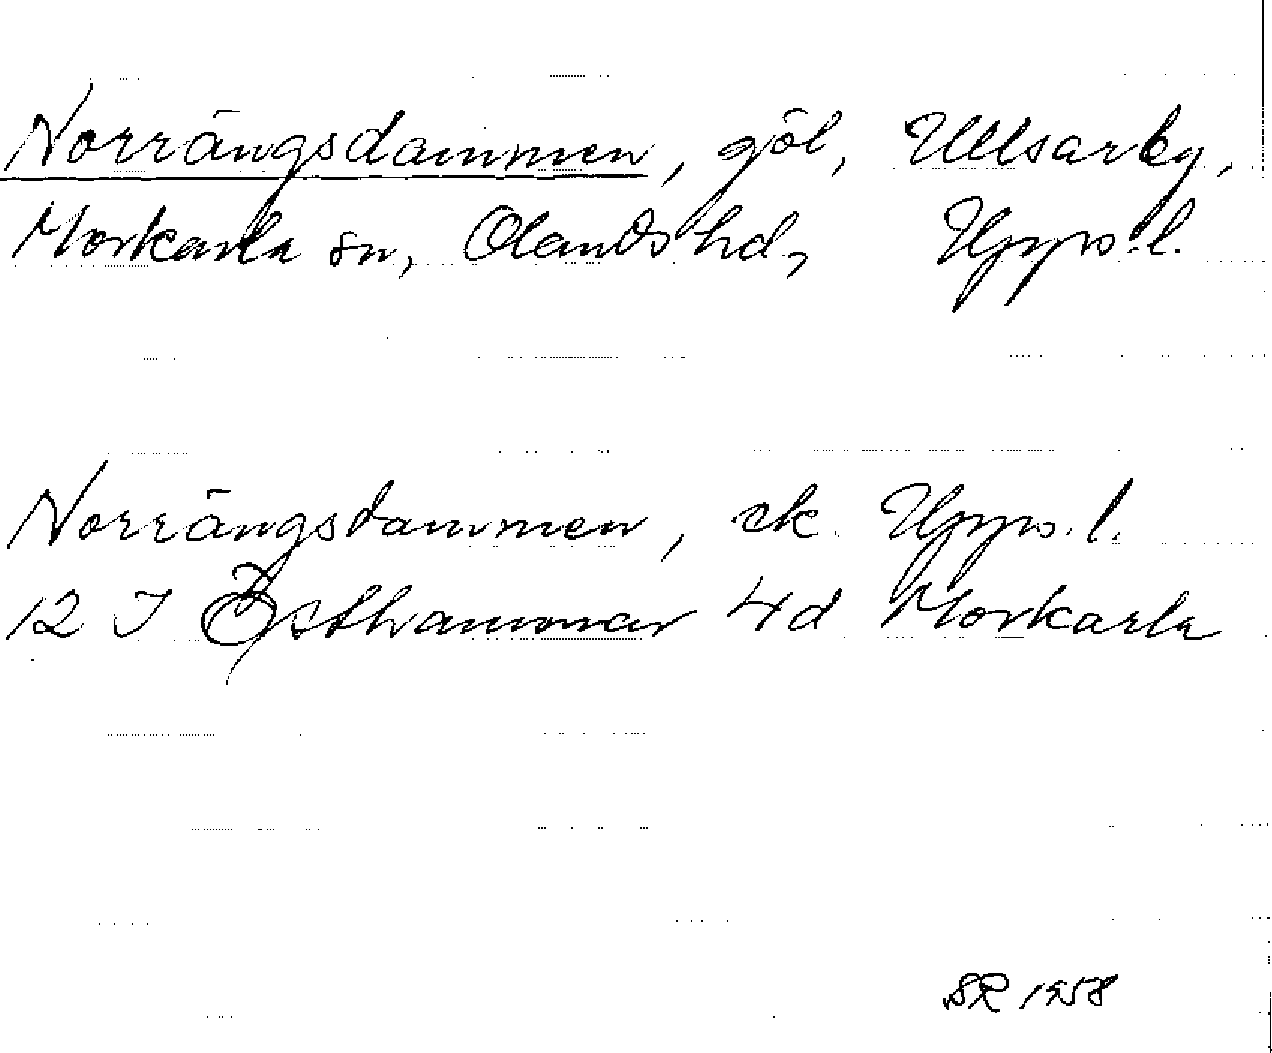 Norrängsdammen, göl, Ullsarby,
Morkarla sn, Olands hd, Upps. l.
Norrängsdammen, ek. Upps. l.
12 I Östhammar 4d Morkarla
SR 1958